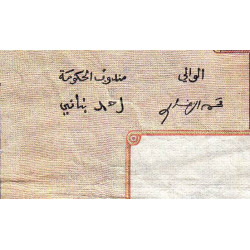 الوالي
مندوب الحكومة
احمد بناني